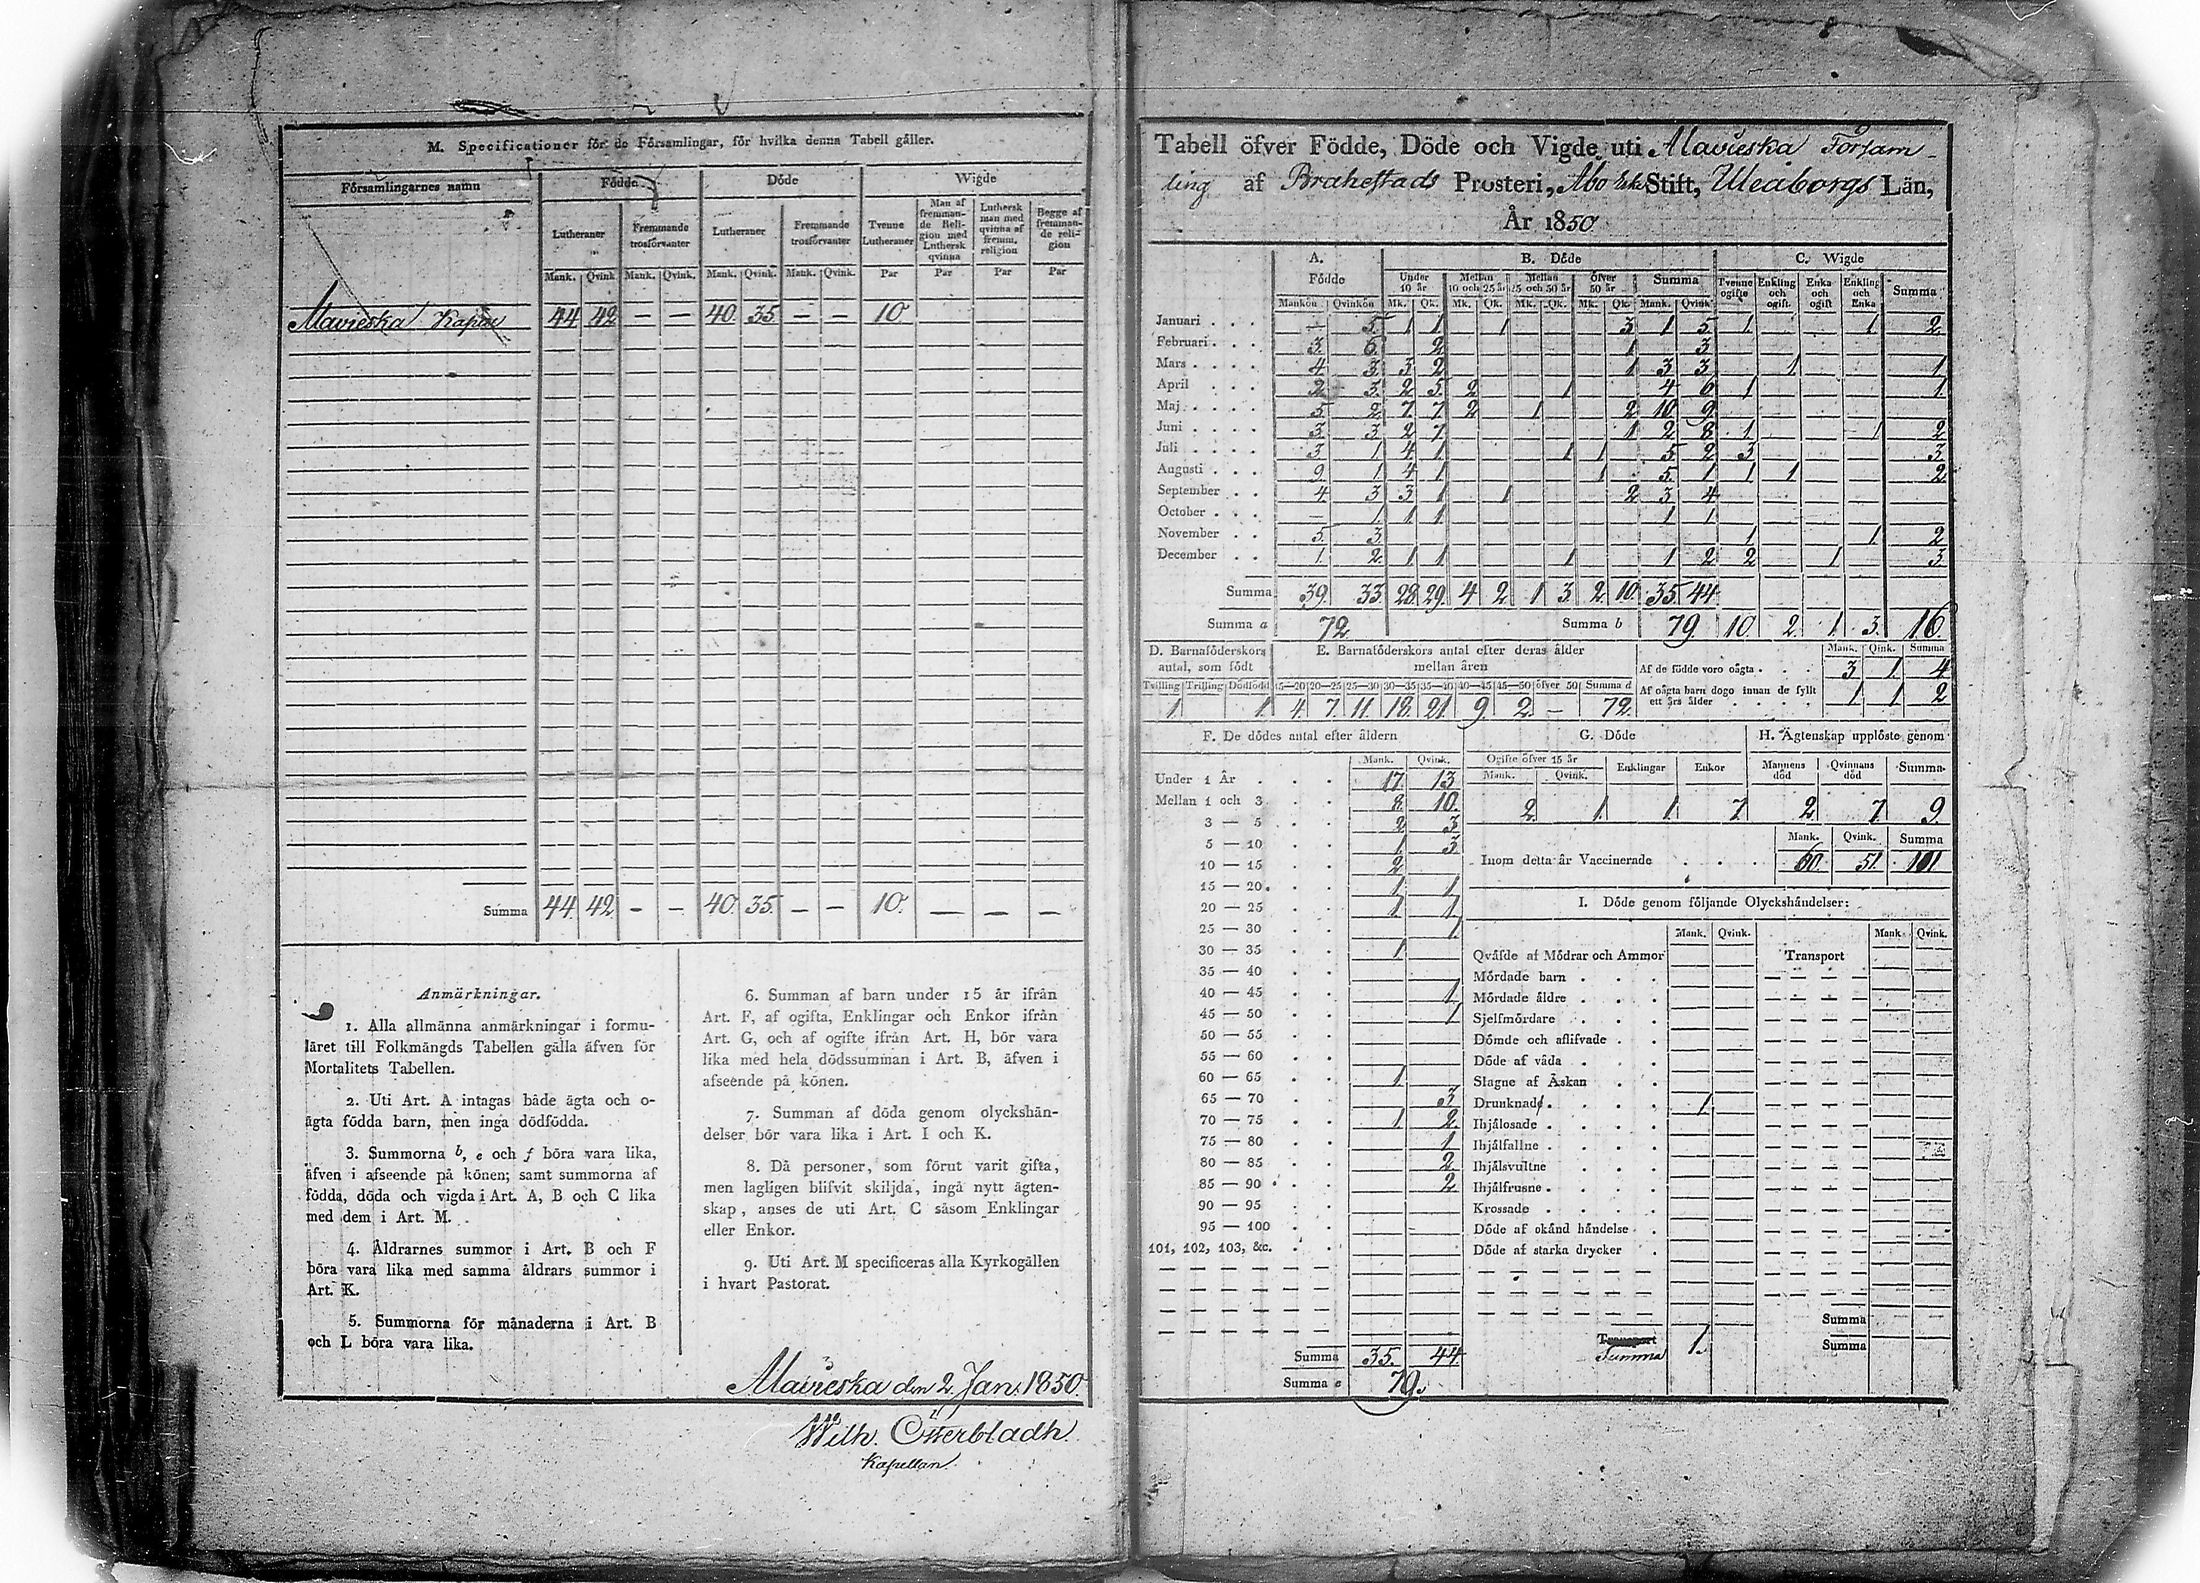 M. Specificationer för de Församlingar, för hvilka denna Tabell gäller.
Församlingarnes namn Födde Döde Wigde
Lutheraner Fremmande trosförvanter Lutheraner Fremmande trosförvanter Tvenne Lutheraner Man af fremmande Religion med Luthersk qvinna Luthersk man med qvinna af fremm. religion Begge af fremmande religion
Mank. Qvink Mank. Qvink. Mank. Qvink. Mank. Qvink. Par Par Par Par
Mavieska Kapell 44 42 — — 40. 35 — — 10.
Summa 44. 42 — — 40. 35. — — 10. — — —
Anmärkningar.
1. Alla allmänna anmärkningar i formu-
läret till Folkmängds Tabellen gälla äfven för
Mortalitets Tabellen.
2. Uti Art. A intagas både ägta och o-
ägta födda barn, men inga dödfödda.
3. Summorna b, e och f böra vara lika,
äfven i afseende på könen; samt summorna af
födda, döda och vigda i Art. A, B och C lika
med dem i Art. M.
4. Åldrarnes summor i Art. B och F
böra vara lika med samma åldrars summor i
Art. K.
5. Summorna för månaderna i Art. B
och L böra vara lika.
6. Summan af barn under 15 år ifrån
Art. F, af ogifta, Enklingar och Enkor ifrån
Art. G, och af ogifte ifrån Art. H, bör vara
lika med hela dödssumman i Art. B, äfven i
afseende på könen.
7. Summan af döda genom olyckshän-
delser bör vara lika i Art. I och K.
8. Då personer, som förut varit gifta,
men lagligen blifvit skiljda, ingå nytt ägten-
skap, anses de uti Art. C såsom Enklingar
eller Enkor.
9. Uti Art. M specificeras alla Kyrkogällen
i hvart Pastorat.
Mavieska den 2. Jan. 1850.
Wilh. Österbladh.
Kapellan.
Tabell öfver Födde, Döde och Vigde uti Mavieska Försam-
ling af Brahestads Prosteri, Åbo Erke Stift, Uleåborgs Län,
År 1850
A. Födde B. Döde C. Wigde
Under 10 år Mellan 10 och 25 år Mellan 25 och 50 år öfver 50 år Summa Tvenne ogifte Enkling och ogift Enka och ogift Enkling och Enka Summa
Mankön Qvinkön Mk. Qk. Mk. Qk. Mk. Qk. Mk. Qk. Mank. Qvink.
Januari — 5. 1 1 1 3 1 5 1 1 2.
Februari 3. 6. 2 1 3
Mars 4 3. 3 2 1 3 3 1. 1
April 2 3. 2 5. 2 1 4 6 1 1.
Maj 5 2. 7 7 2 1 2 10 9.
Juni 3. 3. 2 7 1 2 8 1 1 2
Juli 3 1 4 1 1 1 5 2 3 3.
Augusti 9. 1 4 1 1 5. 1 1 1 2
September 4. 3 3 1 1 2 3 4
October — 1. 1 1 1 1
November 5. 3 1 1 2
December 1. 2. 1 1 1 1 2 2 1 3
Summa 39. 33. 28. 29. 4 2 1 3. 2. 10. 35. 44
Summa a 72. Summa b 79. 10. 2. 1. 3. 16.
D. Barnaföderskors antal, som födt E. Barnaföderskors antal efter deras ålder mellan åren Mank. Qink. Summa
Af de födde voro oägta 3 1 4
Tvilling Trilling Dödfödd 15—20 20—25 25—30 30—35 35—40 40—45 45—50 öfver 50 Summa d
1 1. 4. 7. 11. 18. 21. 9. 2. — 72.
Af oägta barn dogo innan de fyllt ett års ålder 1 1 2
F. De dödes antal efter åldern
Mank. Qvink.
Under 1 År 17. 13
Mellan 1 och 3 8. 10.
3 — 5 2 3
5 — 10 1. 3
10 — 15 2
15 — 20 1 1
20 — 25 1 1
25 — 30 1.
30 — 35 1
35 — 40
40 — 45 1
45 — 50 1
50 — 55
55 — 60
60 — 65 1
65 — 70 3
70 — 75 1 2.
75 — 80 1
80 — 85 2
85 — 90 2
90 — 95
95 — 100
101, 102, 103, &c.
Summa 35. 44
Summa e 79.
G. Döde H. Ägtenskap upplöste genom
Ogifte öfver 15 år Enklingar Enkor Mannens död Qvinnans död Summa
Mank. Qvink.
2. 1. 1 7. 2 7. 9.
Mank. Qvink. Summa
Inom detta år Vaccinerade 51.
I. Döde genom följande Olyckshändelser:
Mank. Qvink. Mank. Qvink.
Qväfde af Mödrar och Ammor Transport
Mördade barn
Mördade äldre
Sjelfmördare
Dömde och aflifvade
Döde af våda
Slagne af Åskan
Drunknade 1.
Ihjälosade
Ihjälfallne
Ihjälsvultne
Ihjälfrusne
Krossade
Döde af okänd händelse
Döde af starka drycker
Summa
Transport
Summa 1. Summa